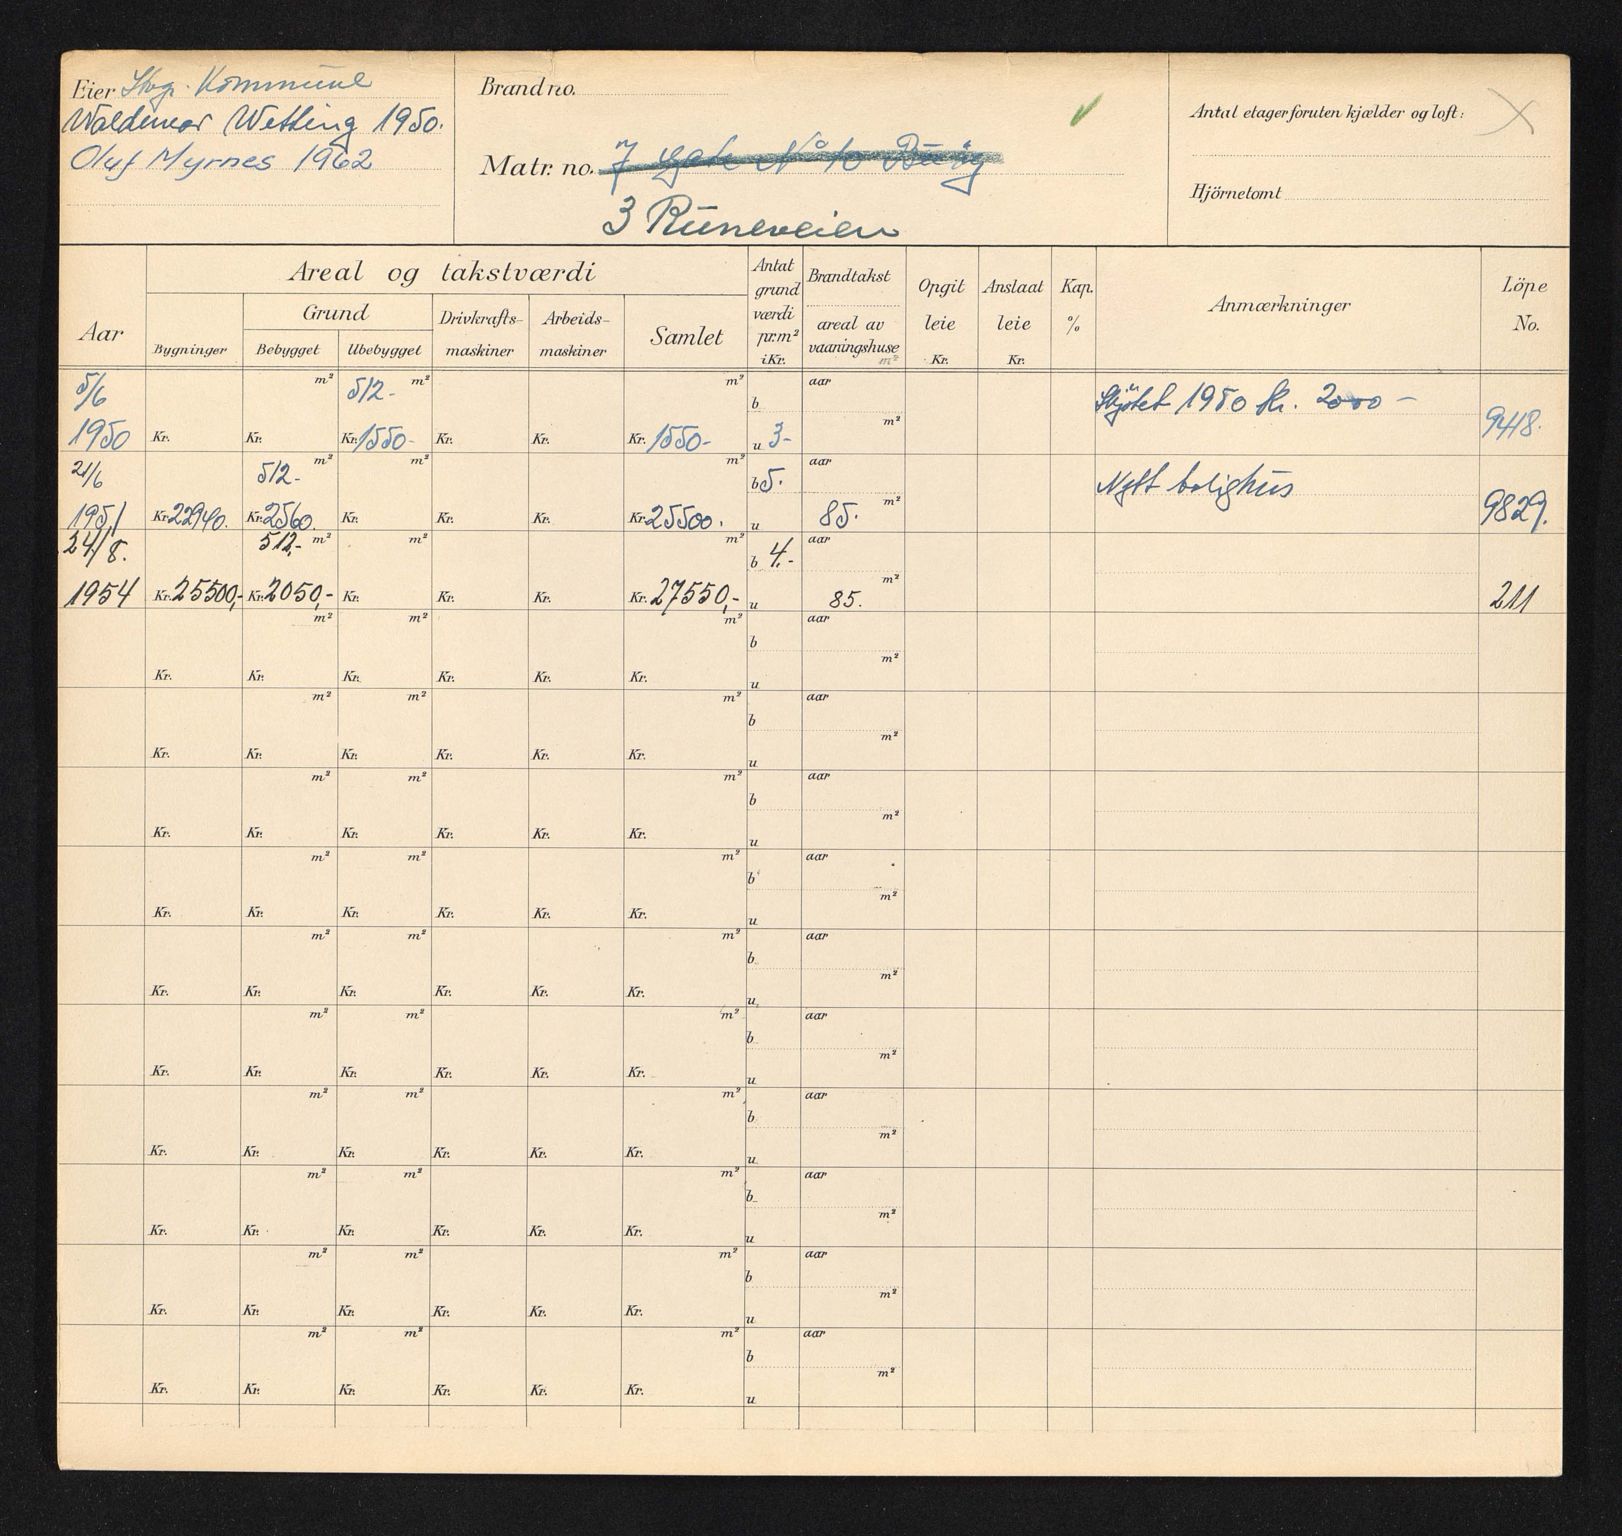 Eier Stvgr. Kommune
Waldemar Wetting 1950.
Oluf Myrnes 1962
Brand no.
Matr. no. 7 gate No 10
3 Runeveien
Antal etager foruten kjælder og loft: X
Hjörnetomt
Aar
Areal og takstværdi
Grund
Bygninger Bebygget Ubebygget
Drivkrafts-
maskiner
Arbeids-
maskiner
Samlet
Antat
grund
værdi
pr.m²
i Kr.
Brandtakst
areal av
vaaningshuse
m²
Opgit
leie
Kr.
Anslaat
leie
Kr.
Kap.
%
Anmærkninger
Löpe
No.
5/6 m² 512- m² m² b aar Skjøtet 1950 kr. 2000 -
1950 Kr. Kr. Kr. 1550- Kr. Kr. Kr. 1550- u 3- m² 9418.
21/6 512- m² m² m² b 5. aar Nytt bolighus
1951 Kr. 22940. Kr. 2560. Kr. Kr. Kr. Kr. 25500. u 85. m² 9829.
24/8. 512,- m² m² m² b 4,- aar
1954 Kr. 25500,- Kr. 2050,- Kr. Kr. Kr. Kr. 27550,- u 85. m² 211
m² m² m² b aar
Kr. Kr. Kr. Kr. Kr. Kr. u m²
m² m² m² b aar
Kr. Kr. Kr. Kr. Kr. Kr. u m²
m² m² m² b aar
Kr. Kr. Kr. Kr. Kr. Kr. u m²
m² m² m² b aar
Kr. Kr. Kr. Kr. Kr. Kr. u m²
m² m² m² b aar
Kr. Kr. Kr. Kr. Kr. Kr. u m²
m² m² m² b aar
Kr. Kr. Kr. Kr. Kr. Kr. u m²
m² m² m² b aar
Kr. Kr. Kr. Kr. Kr. Kr. u m²
m² m² m² b aar
Kr. Kr. Kr. Kr. Kr. Kr. u m²
m² m² m² b aar
Kr. Kr. Kr. Kr. Kr. Kr. u m²
m² m² m² b aar
Kr. Kr. Kr. Kr. Kr. Kr. u m²